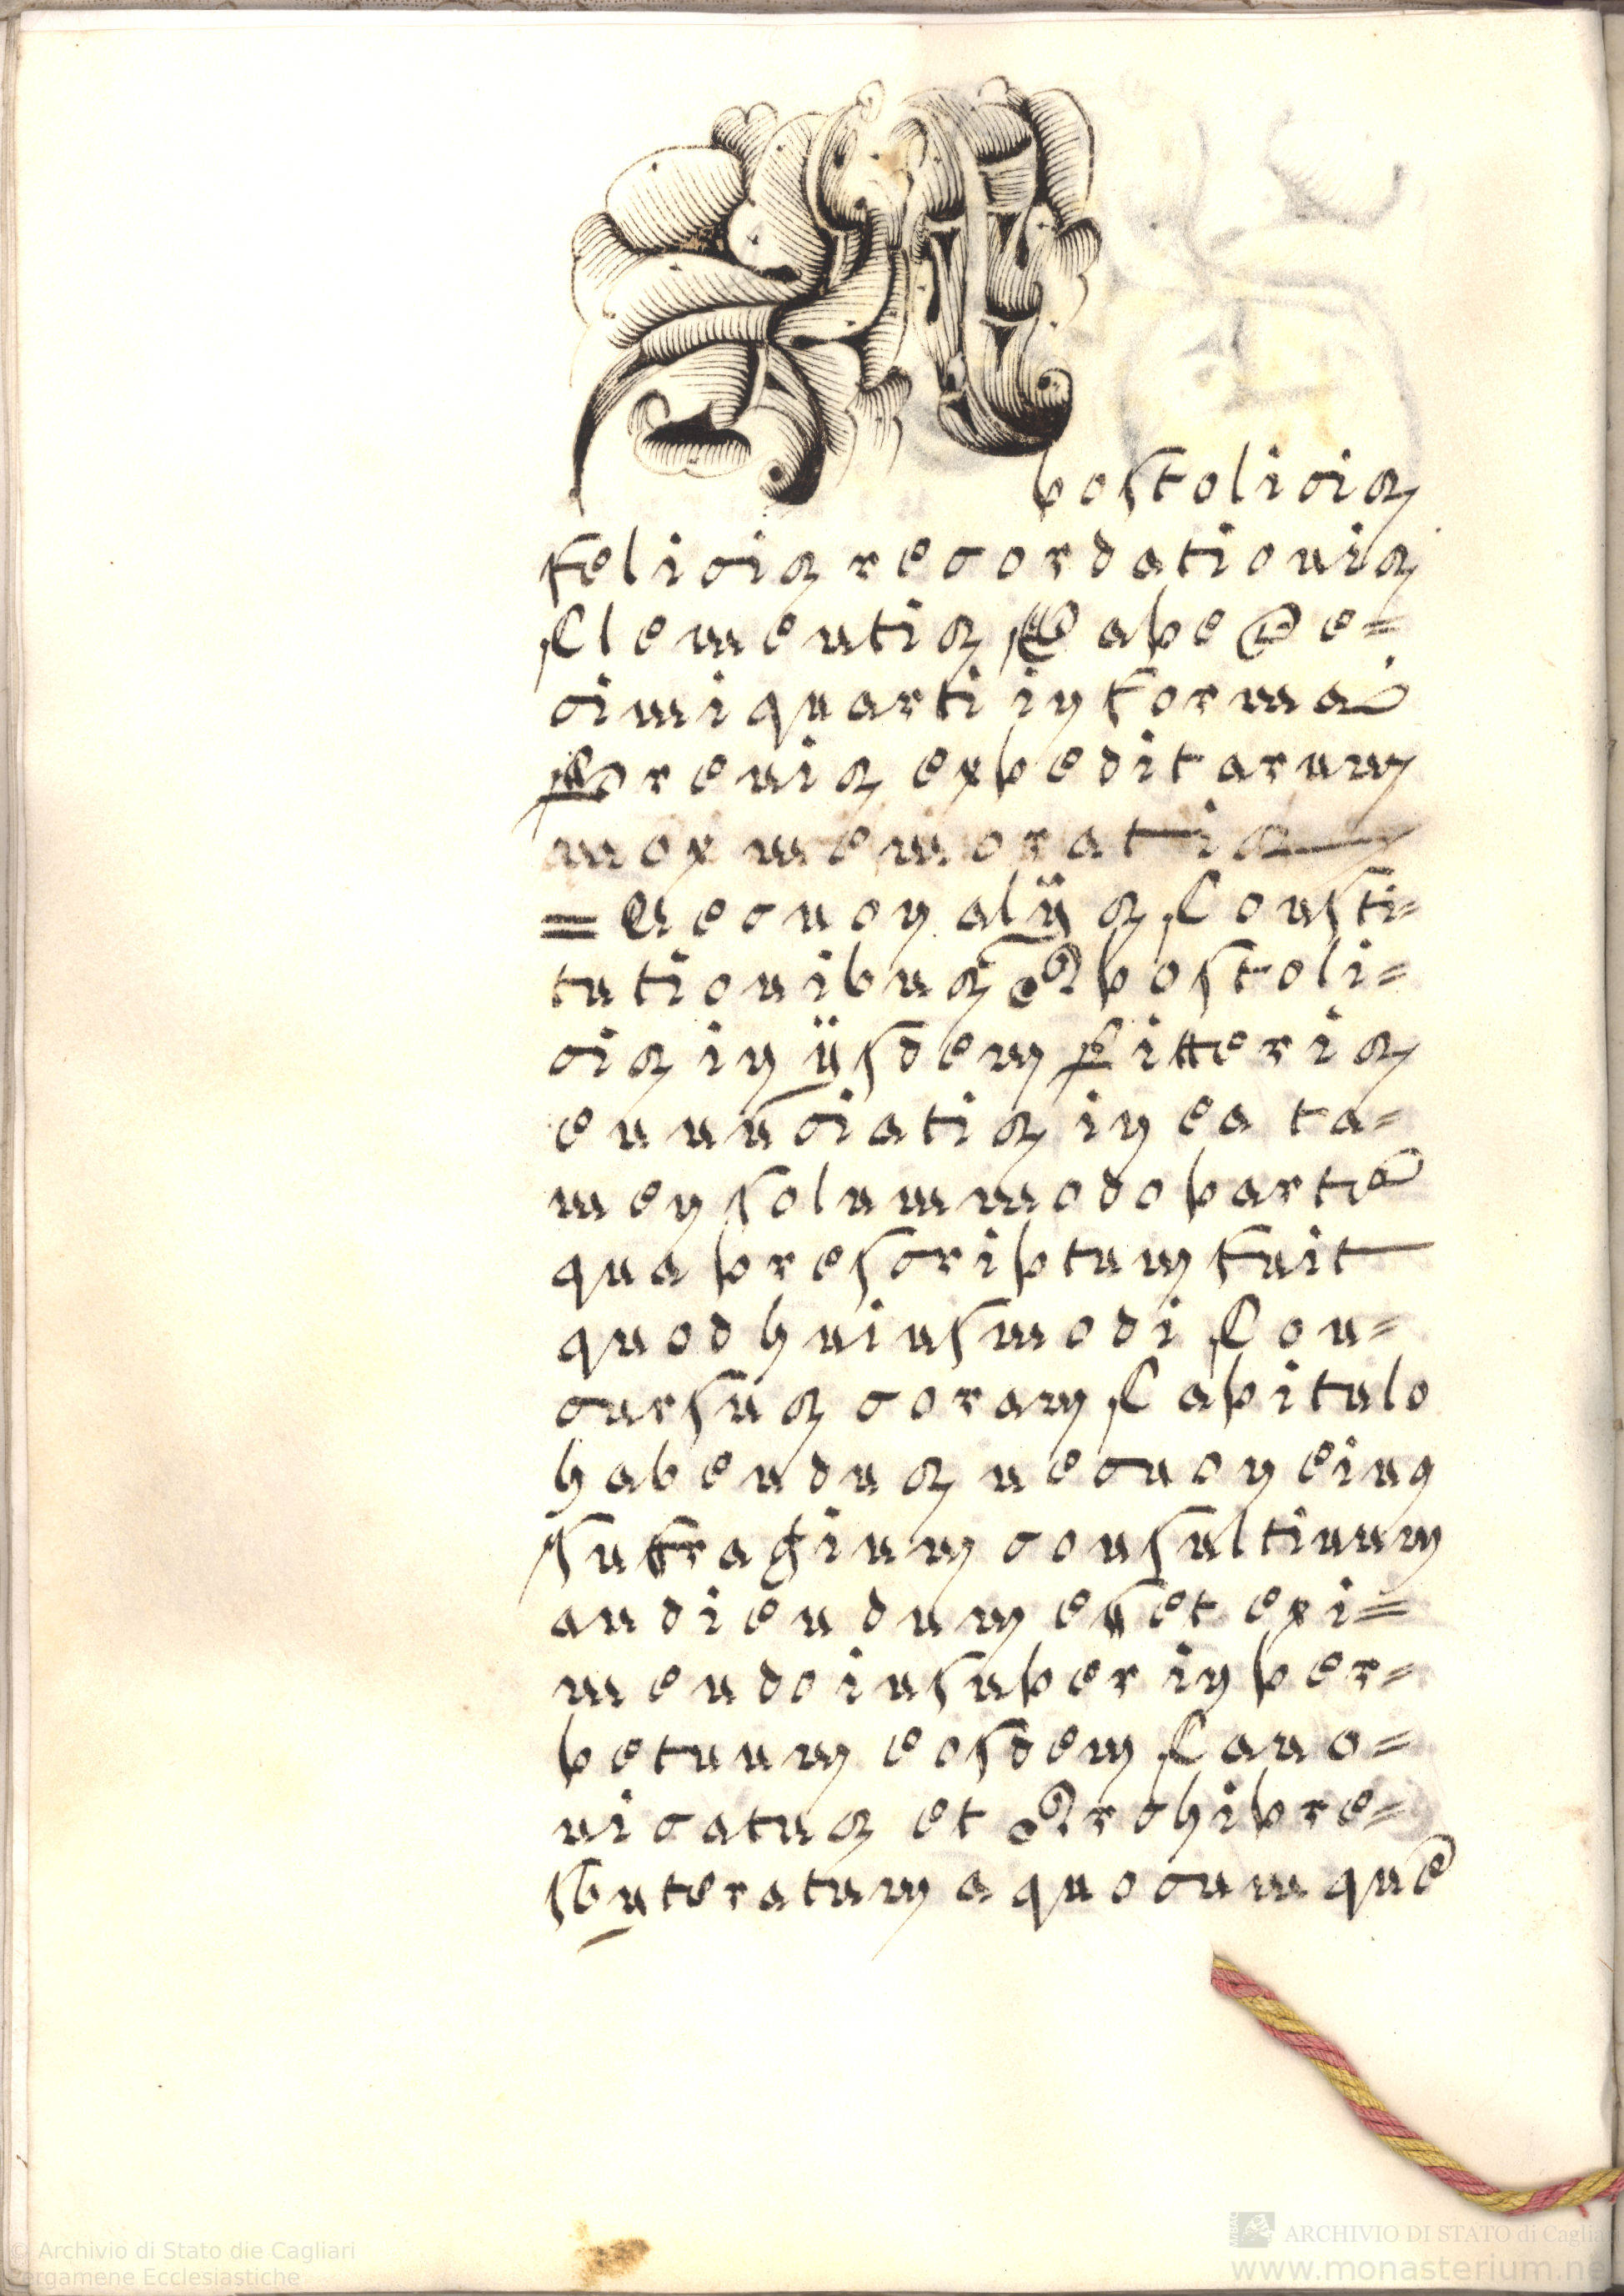 Apostolicis
felicis recordationis
Clementis Pape De=
cimi quarti in forma
Brevis expeditarum
mox memoratis
= Necnon alijs Consti=
tutionibus Aposto­li=
cis in ijsdem Litteris
enunciatis in ea ta=
men solummodo parte
qua prescriptum fuit
quod huiusmodi Con=
cursus coram Capitulo
habendus necnon eius
suffragium consultiuum
audiendum esset exi=
mendo insuper in per=
petuum eosdem Cano=
nicatus et Archipre=
sbyteratum a quocumque
© Archivio di Stato die Cagliari
Pergamene Ecclesiastiche
ARCHIVIO DI STATO di Cagliari
www.monasterium.net